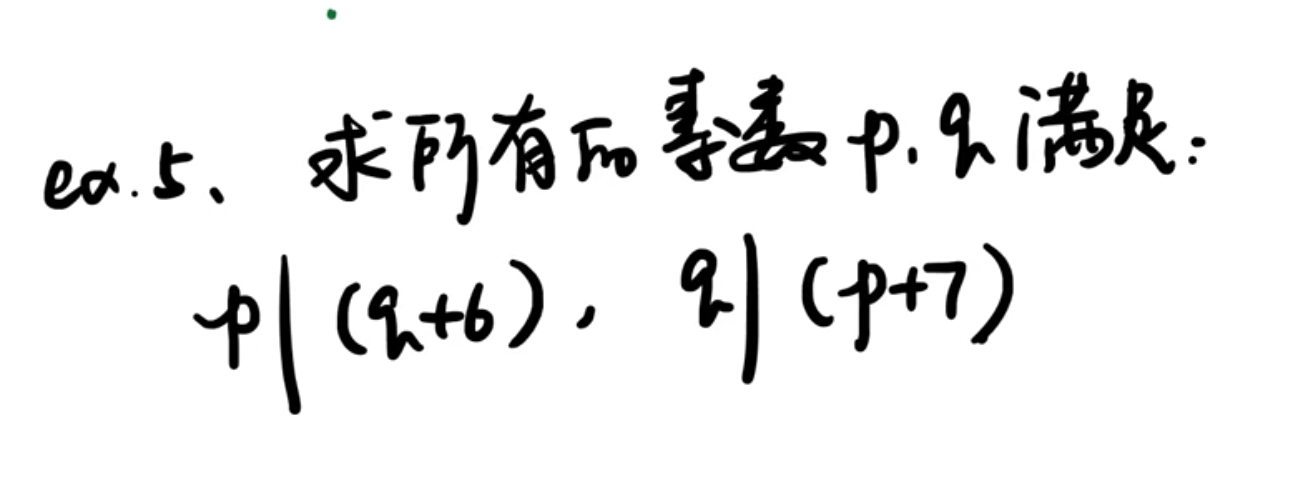 ex.5、求所有的素数 p.q 满足:
p|(q+6), q|(p+7)